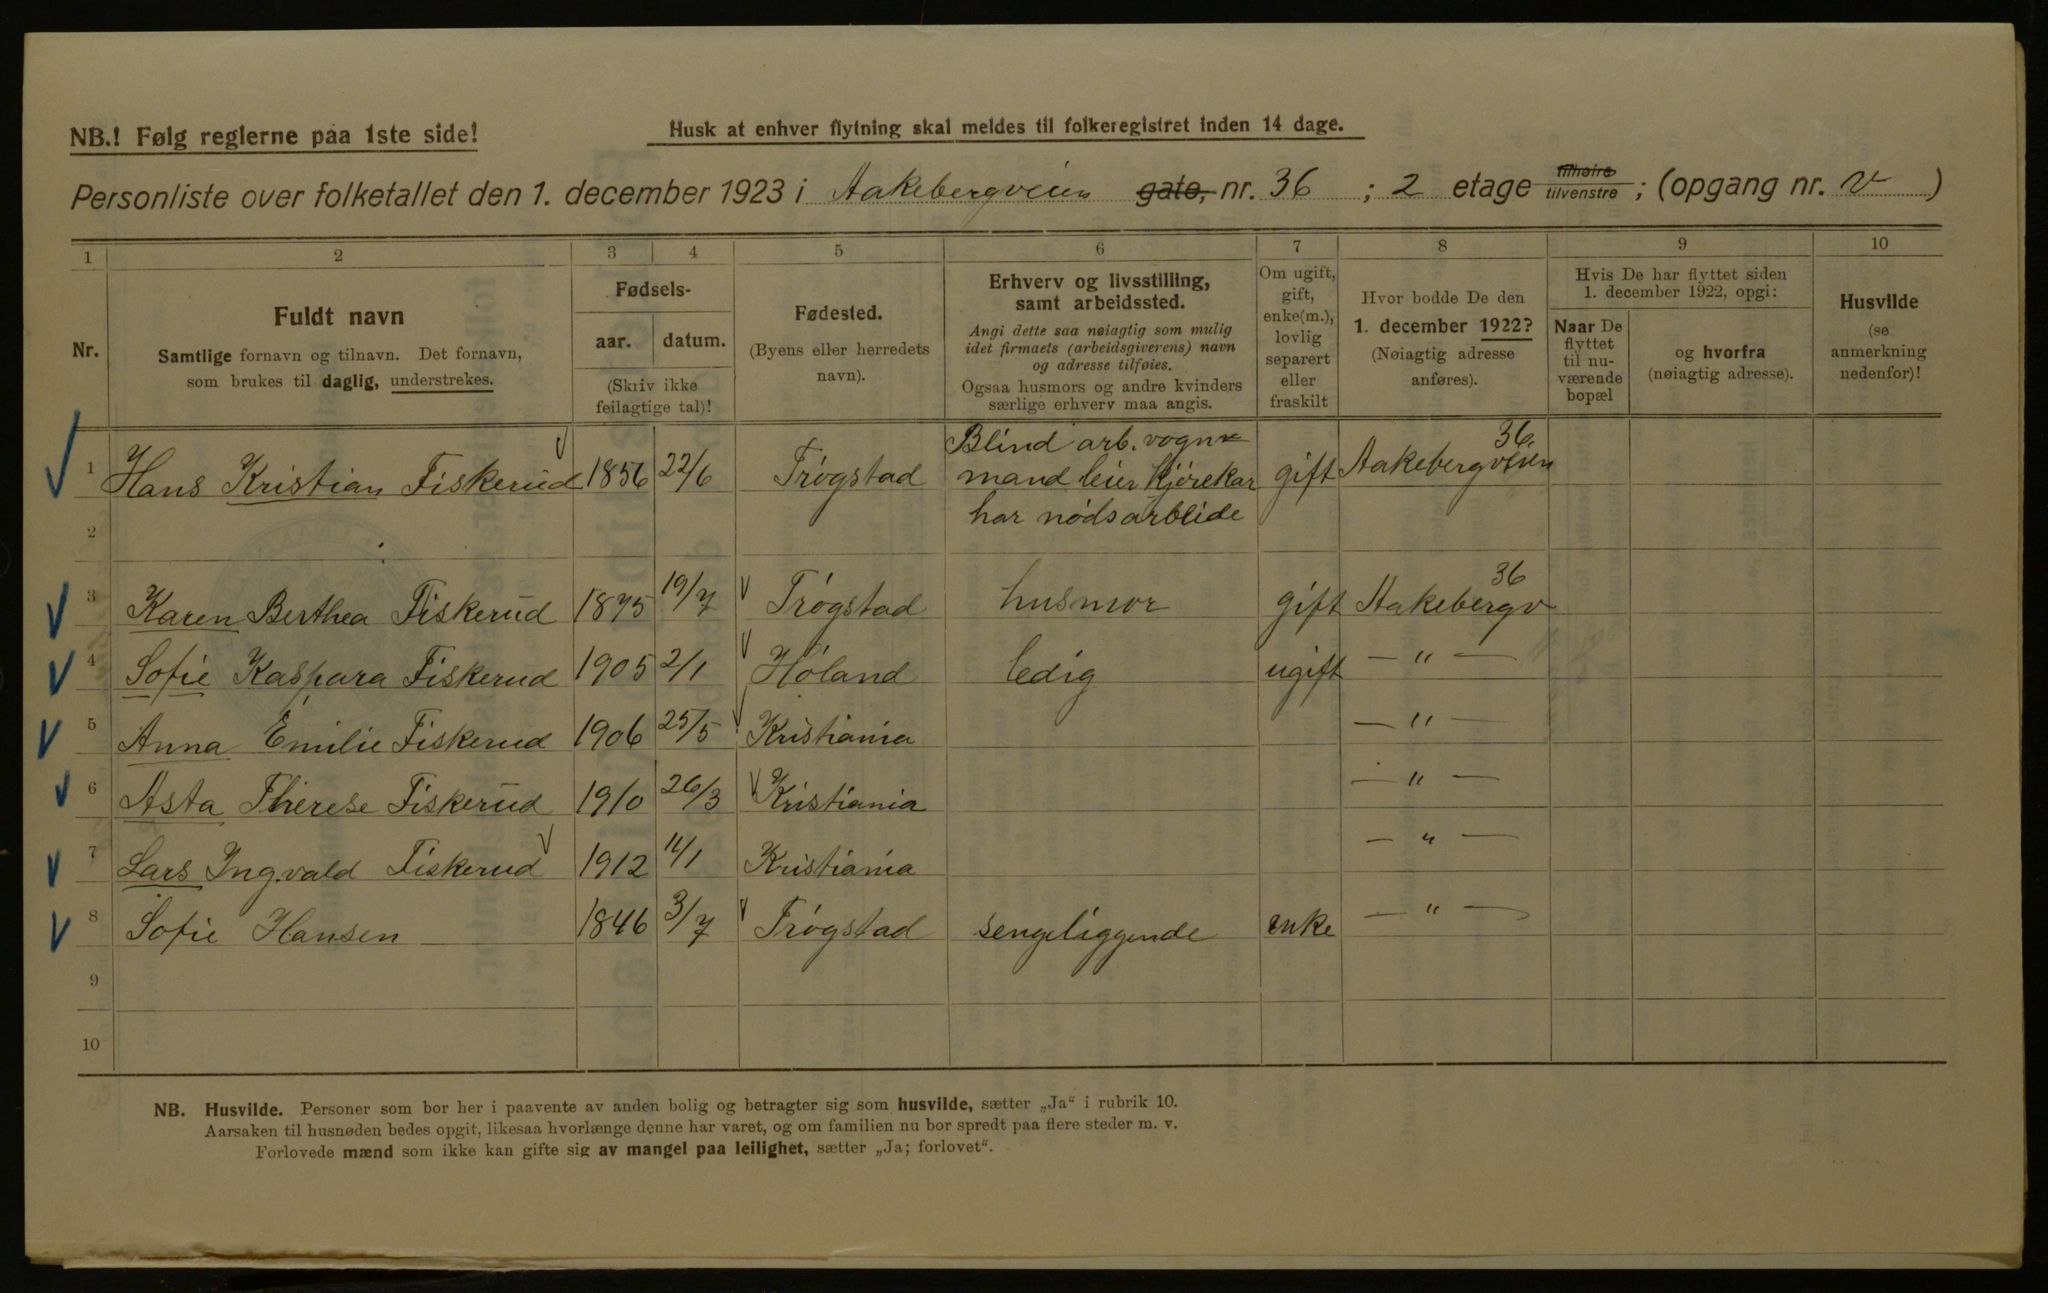 NB.! Følg reglerne paa 1ste side!
Husk at enhver flytning skal meldes til folkeregistret inden 14 dage.
Personliste over folketallet den 1. december 1923 i Aakebergveien gate, nr. 36 ; 2 etage tilhøire tilvenstre ; (opgang nr. V )
1 2 3 4 5 6 7 8 9 10
Nr.
Fuldt navn
Samtlige fornavn og tilnavn. Det fornavn,
som brukes til daglig, understrekes.
Fødsels-
aar. datum.
(Skriv ikke
feilagtige tal)!
Fødested.
(Byens eller herredets
navn).
Erhverv og livsstilling,
samt arbeidssted.
Angi dette saa nøiagtig som mulig
idet firmaets (arbeidsgiverens) navn
og adresse tilføies.
Ogsaa husmors og andre kvinders
særlige erhverv maa angis.
Om ugift,
gift,
enke(m.),
lovlig
separert
eller
fraskilt
Hvor bodde De den
1. december 1922?
(Nøiagtig adresse
anføres).
Hvis De har flyttet siden
1. december 1922, opgi:
Naar De
flyttet
til nu-
værende
bopæl
og hvorfra
(nøiagtig adresse).
Husvilde
(se
anmerkning
nedenfor)!
1 Hans Kristian Fiskerud 1856 22/6 Trøgstad Blind arb. vogn
mand leier kjørekar
har nødsarbeide
gift Aakebergveien 36.
2
3 Karen Berthea Fiskerud 1875 19/7 Trøgstad husmor gift Aakebergv 36
4 Sofie Kaspara Fiskerud 1905 2/1 Høland ledig ugift — " —
5 Anna Emilie Fiskerud 1906 25/5 Kristiania — " —
6 Asta Therese Fiskerud 1910 26/3 Kristiania — " —
7 Lars Ingvald Fiskerud 1912 11/1 Kristiania — " —
8 Sofie Hansen 1846 3/7 Trøgstad sengeliggende enke — " —
9
10
NB. Husvilde. Personer som bor her i paavente av anden bolig og betragter sig som husvilde, sætter „Ja“ i rubrik 10.
Aarsaken til husnøden bedes opgit, likesaa hvorlænge denne har varet, og om familien nu bor spredt paa flere steder m. v.
Forlovede mænd som ikke kan gifte sig av mangel paa leilighet, sætter „Ja; forlovet“.